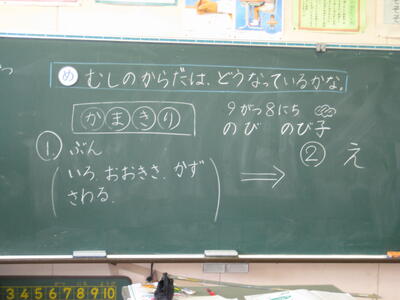 め むしのからだは、どうなっているかな。
かまきり
9がつ8にち
のび のび子
① ぶん
いろ、おおきさ、かず
さわる。
② え
3 4 5 6 7 8 9 10